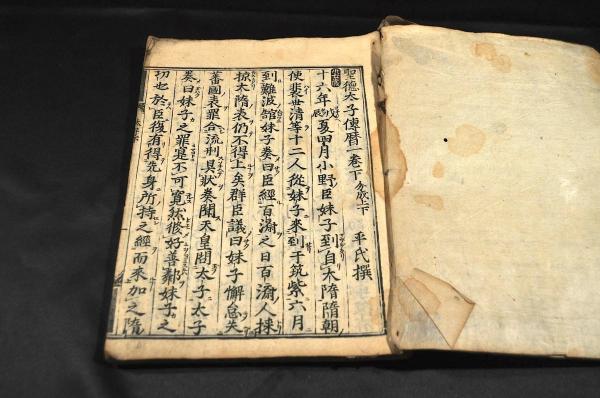 聖德太子傳曆一卷下 平氏撰
十六年 夏四月小野臣妹子到自大隋隋朝
使裴世清等十二人從妹子來到于筑紫六月
到難波館妹子奏曰臣經百濟之日百濟人探
掠大隋表仍不得上矣群臣議曰妹子懈怠失
蕃國表罪合流刑具狀奏聞天皇問太子太子
奏曰妹子之罪寔不可寬然後好善鄰妹子之
切也於臣復有得先身所持之經而來加之隋